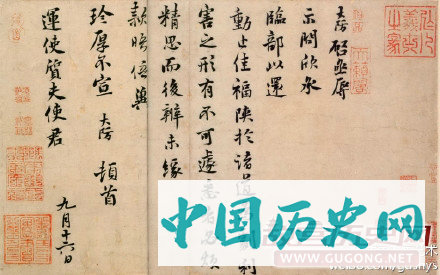 大防啓亟辱
示問欣承
臨部以還
動止佳福陝於諸道利
害之形有不可遽必須
精思而後辨未緣
款晤倍冀
珍厚不宣 大防 頓首
運使質夫使君
九月十六日
中国历史网
WWW.GUGONG.NET